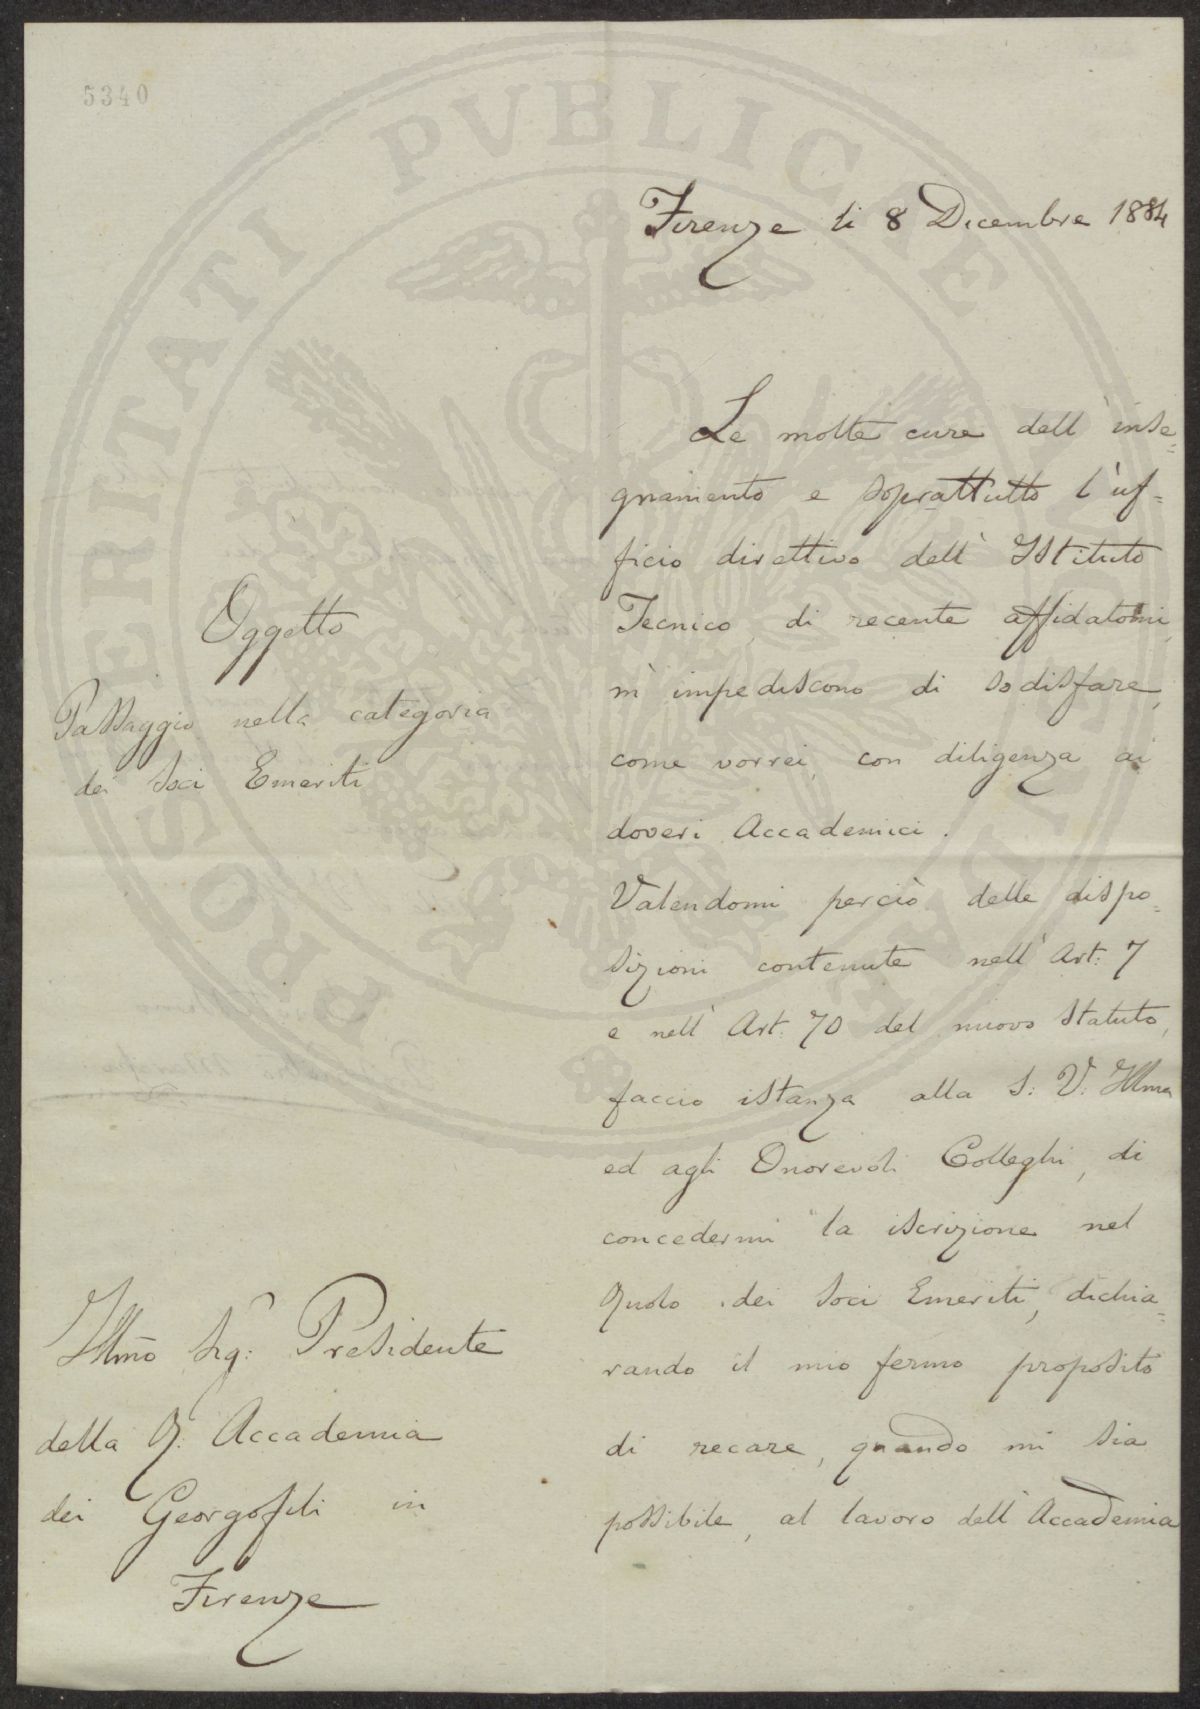 5340
PROSPERITATI PVBLICAE
Firenze li 8 Dicembre 1884
Le molte cure dell' inse=
gnamento e soprattutto l'uf=
ficio direttivo dell' Istituto
Tecnico, di recente affidatomi,
m' impediscono di sodisfare,
come vorrei, con diligenza ai
doveri Accademici.
Valendomi perciò delle dispo=
sizioni contenute nell' Art: 7
e nell' Art: 70 del nuovo Statuto,
faccio istanza alla S: V: Illma
ed agli Onorevoli Colleghi, di
concedermi la iscrizione nel
Ruolo dei Soci Emeriti, dichia=
rando il mio fermo proposito
di recare, quando mi sia
possibile, al lavoro dell' Accademia
Oggetto
Passaggio nella categoria
dei Soci Emeriti
Illmo Sig: Presidente
della R. Accademia
dei Georgofili in
Firenze